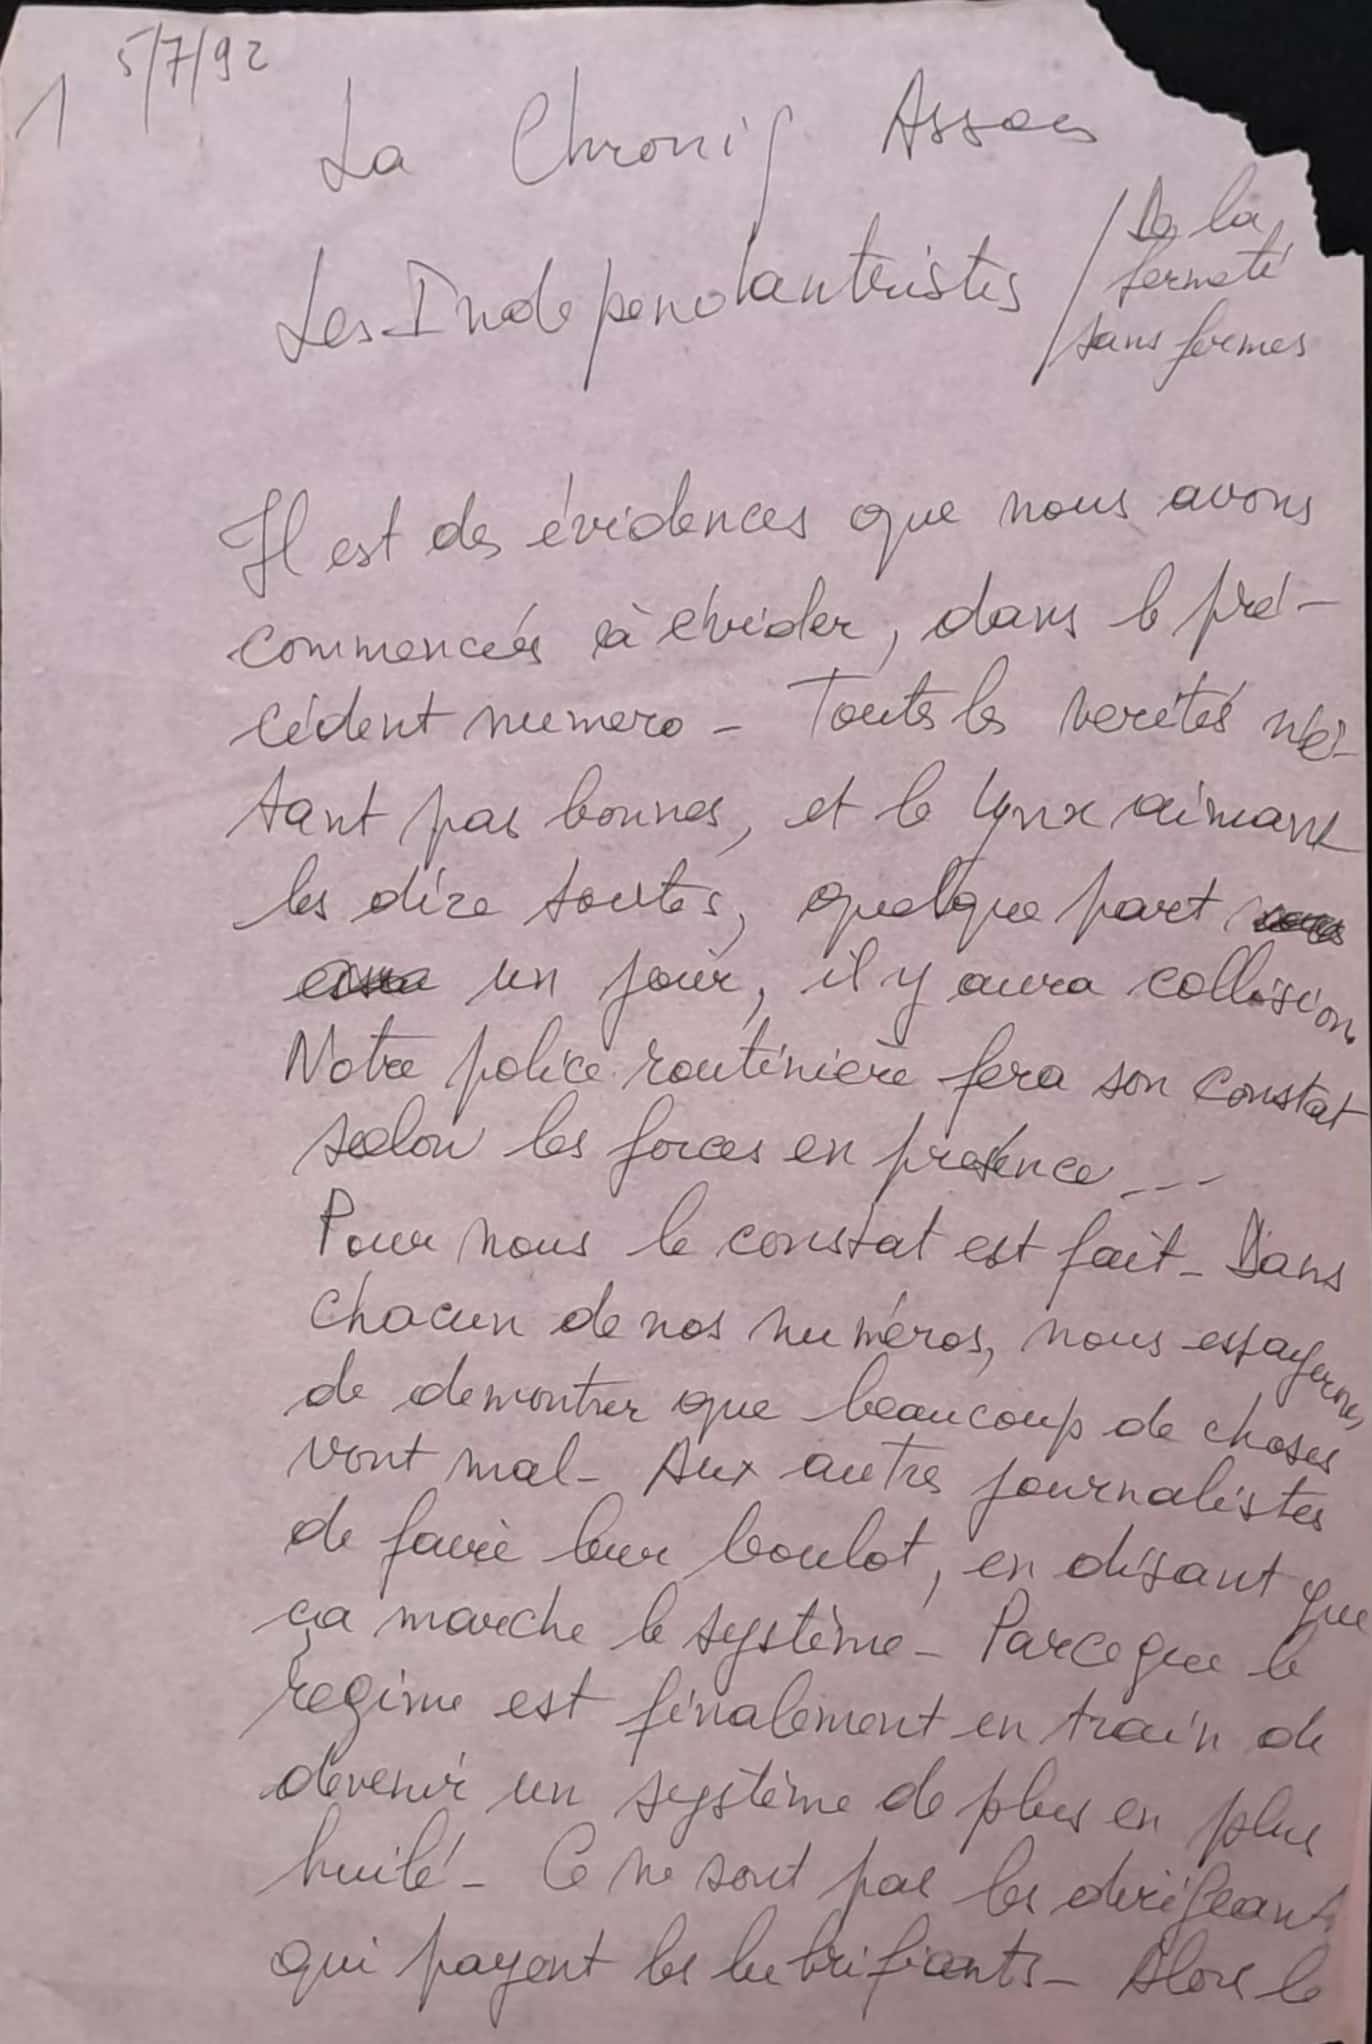 1 5/7/92
La Chroniq Assaes
Les Independantristes / De la
fermeté
sans fermes
Il est des évidences que nous avons
commencées à évider, dans le pré-
cédent numero - Toutes les verités n'é-
tant pas bonnes, et le lynx aimant
les dire toutes, quelque part
un jour, il y aura collision.
Notre police routinière fera son constat
selon les forces en présence ...
Pour nous le constat est fait - Dans
chacun de nos numéros, nous essayerons
de demontrer que beaucoup de choses
vont mal - Aux autres journalistes
de faire leur boulot, en disant que
ça marche le système - Parceque le
régime est finalement en train de
devenir un système de plus en plus
huilé - Ce ne sont pas les dirigeants
qui payent les lubrifiants - Alors le